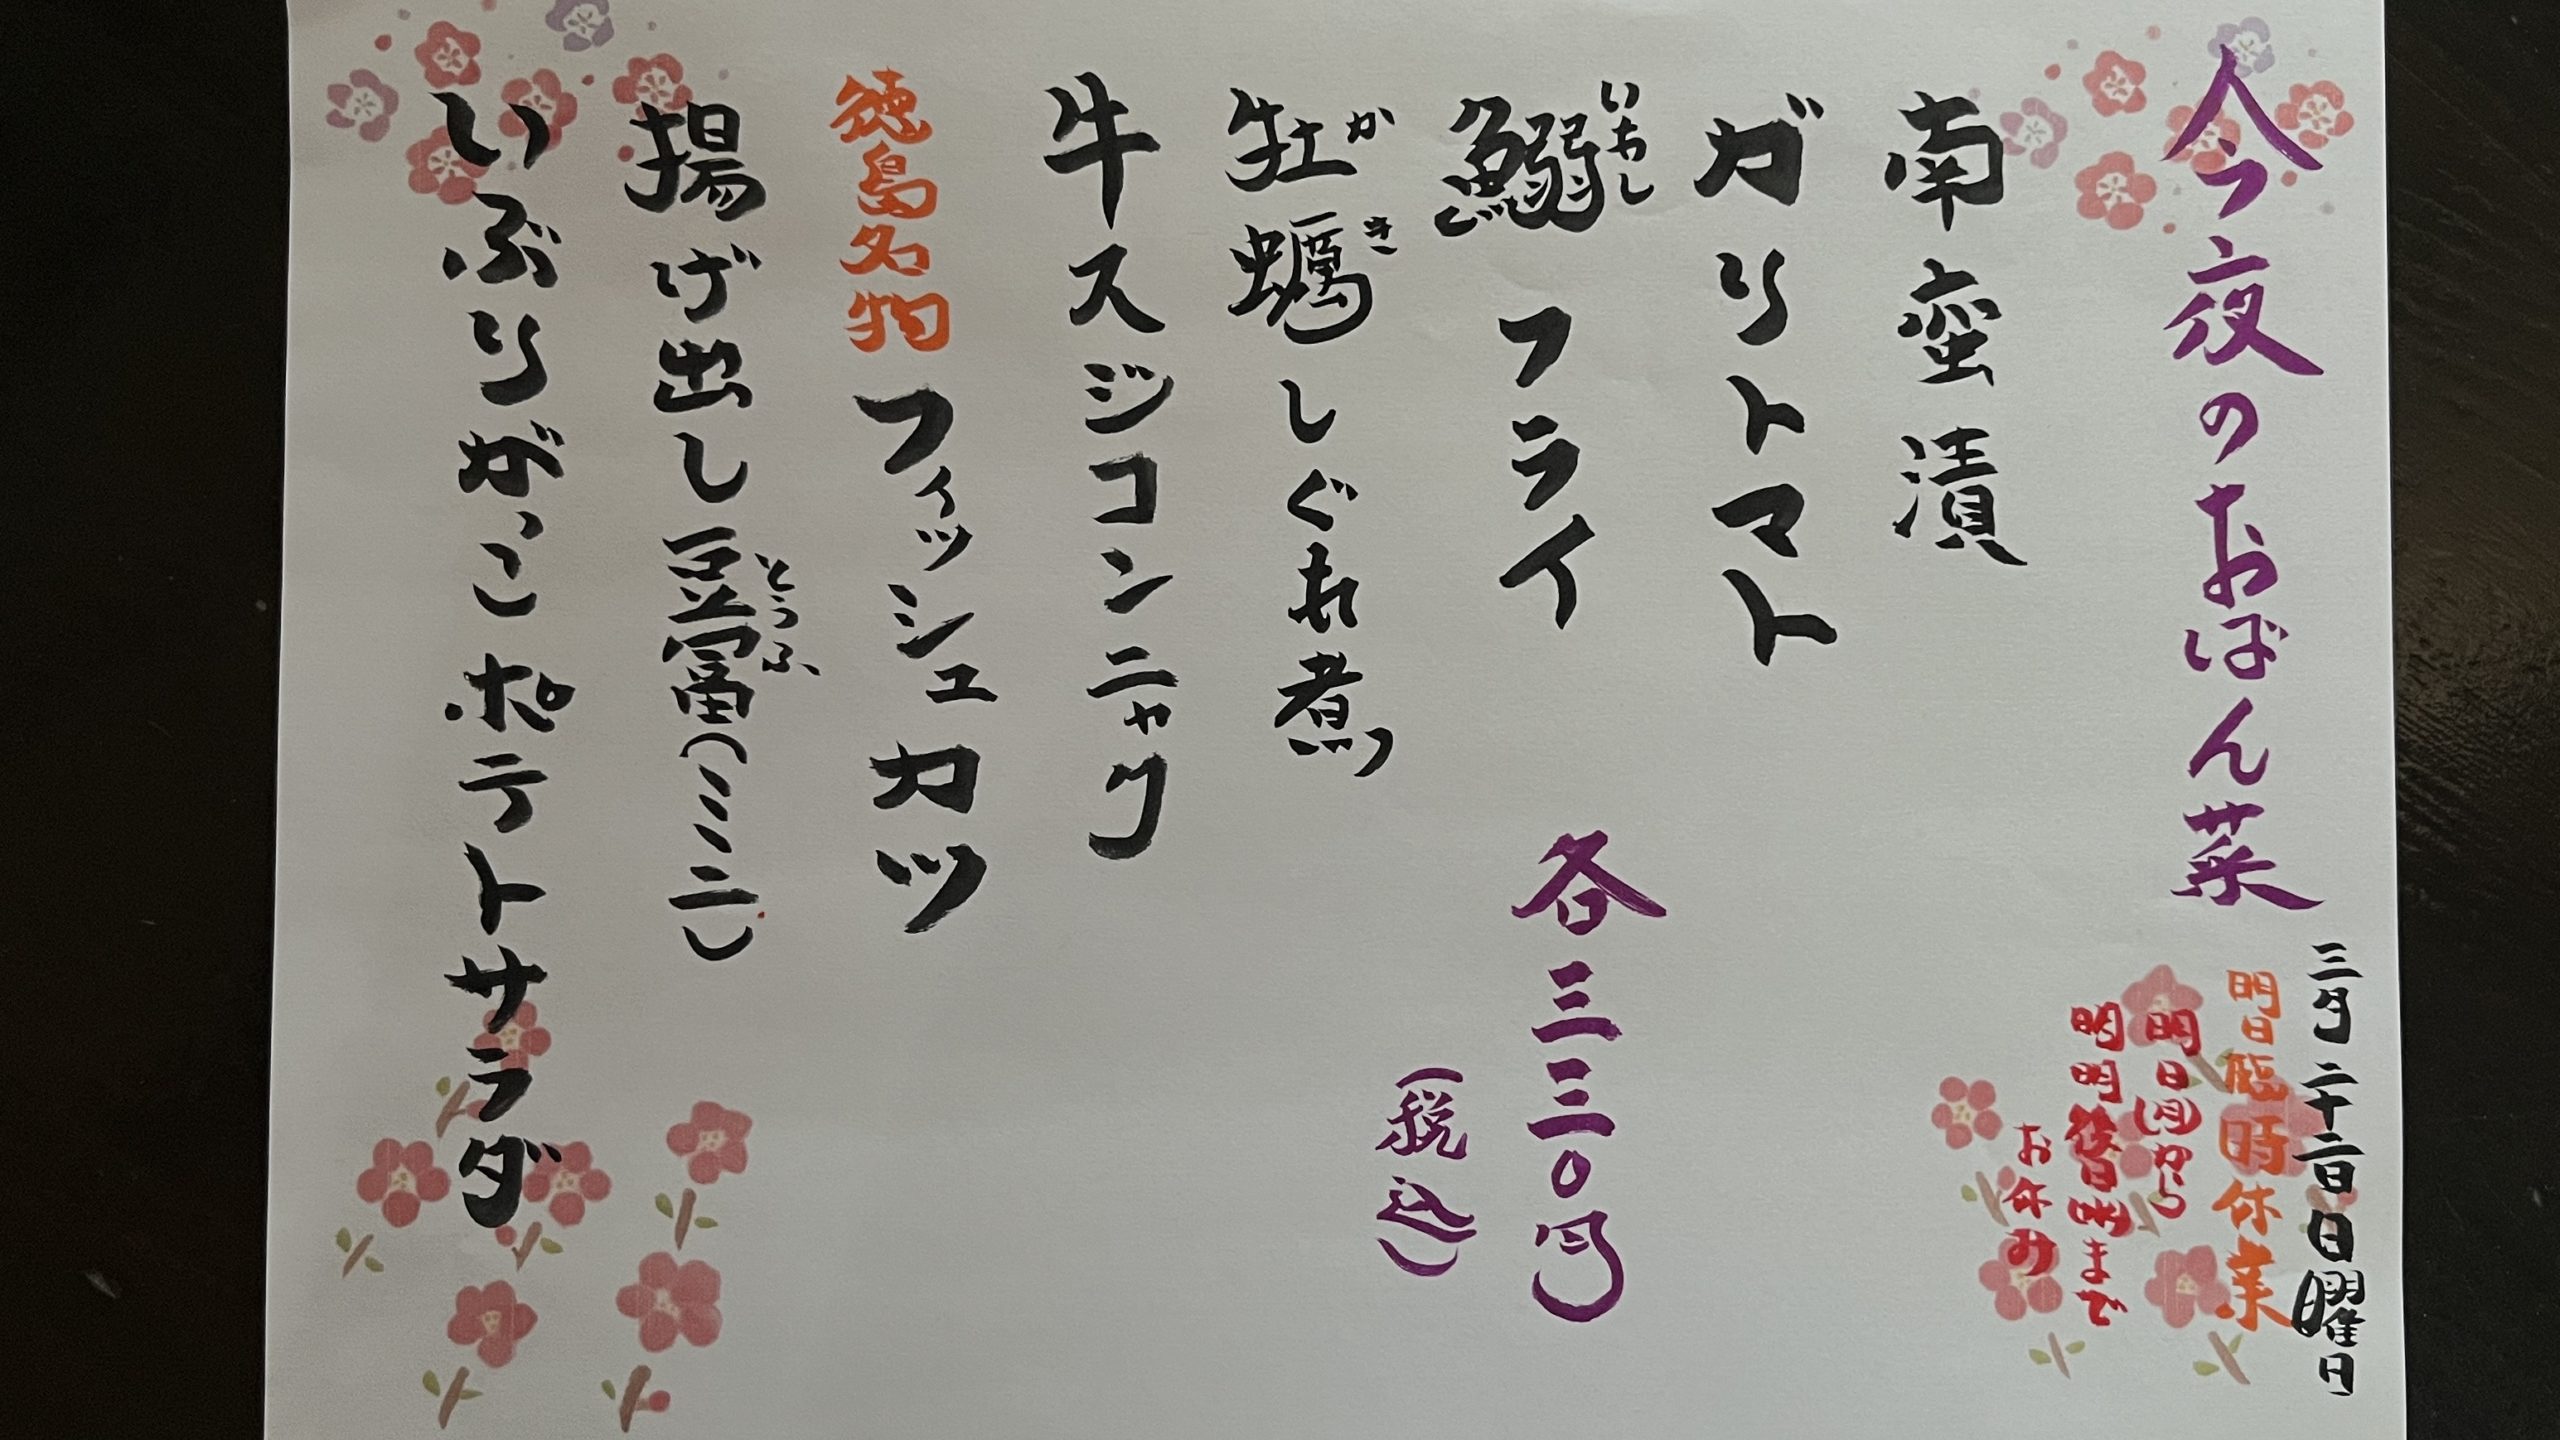 今夜のおばん菜
三月二十二日日曜日
明日臨時休業
明日(月)から
明明後日(水)まで
お休み
南蛮漬
ガリトマト
いわし
鰯フライ
各三三〇円
(税込)
かき
牡蠣しぐれ煮
牛スジコンニャク
徳島名物フィッシュカツ
とうふ
揚げ出し豆冨(ミニ)
いぶりがっこポテトサラダ